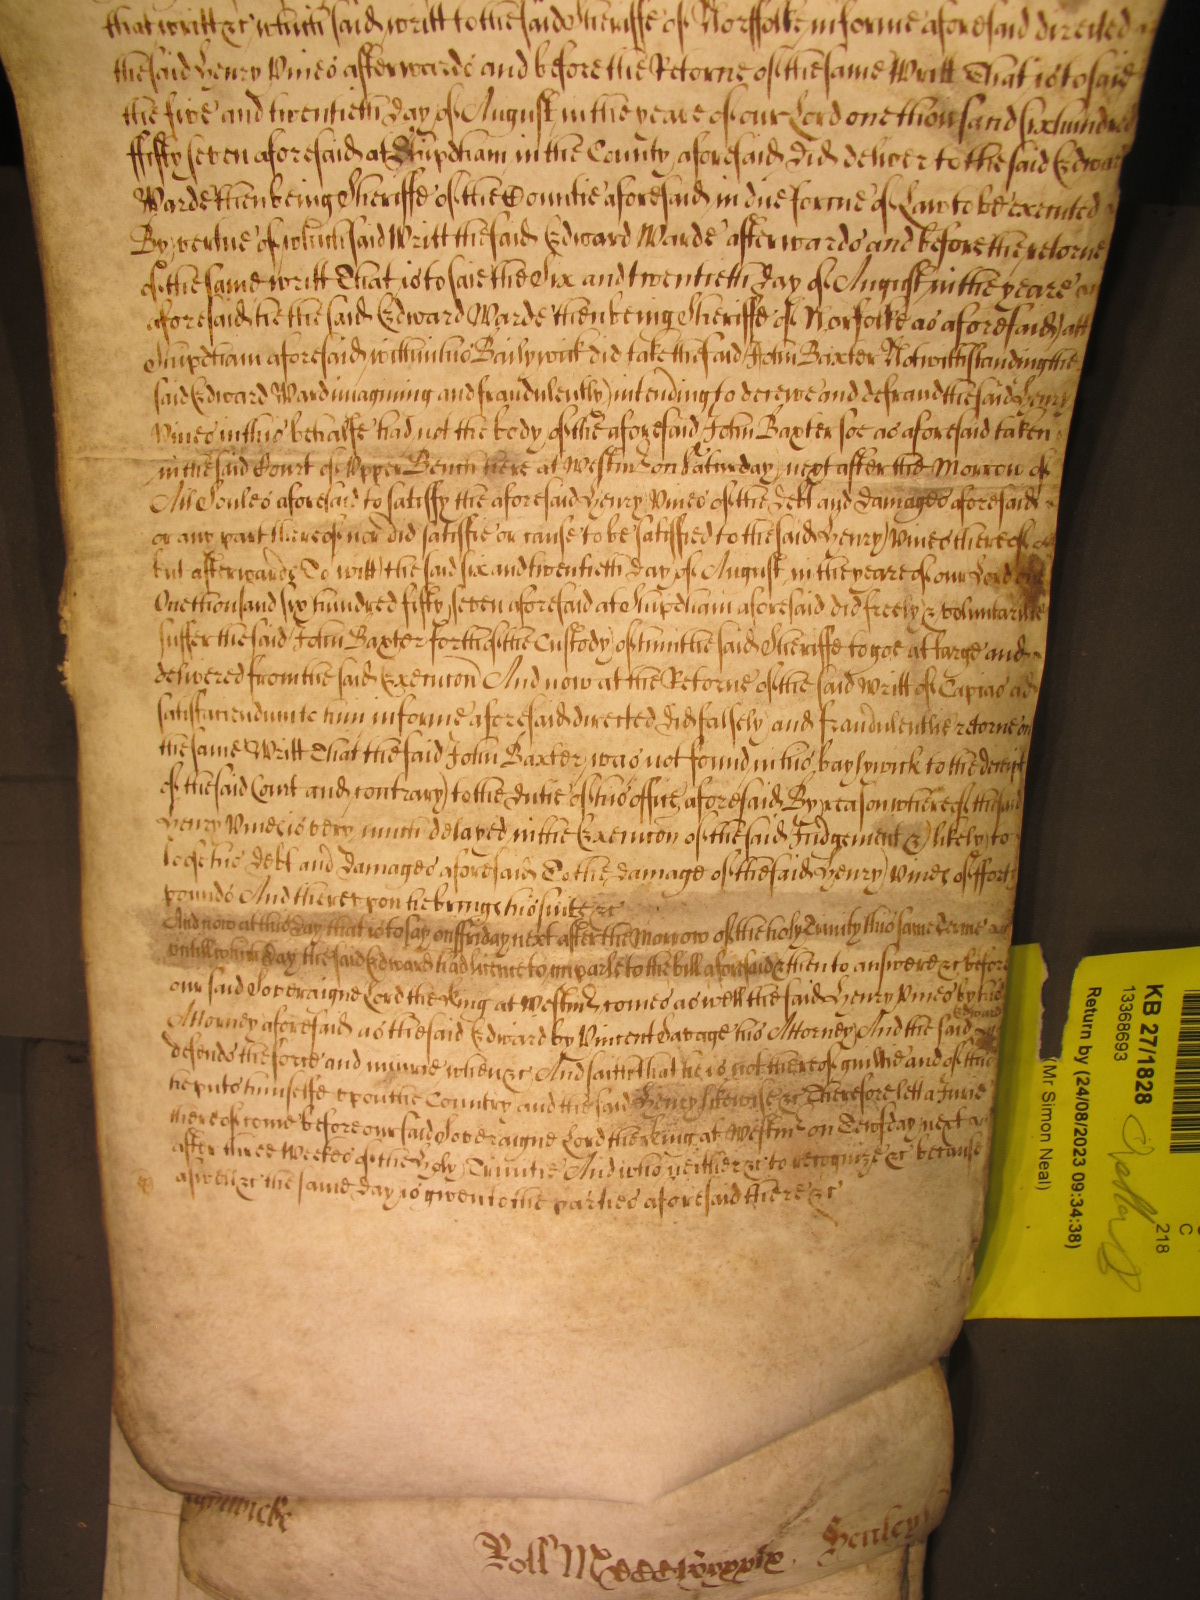 that writt &c which said writt to the said Sheriffe of Norffolke in forme aforesaid directed
the said Henry Vines afterwards and before the Retorne of the same Writt That is to said
the five and twentieth day of August in the yeare of our Lord one thousand six hundred
ffifty seven aforesaid at in the County aforesaid did deliver to the said Edward
Warde then being Sheriffe of the Countie aforesaid in due forme of Law to be executed
By vertue of which said Writt the said Edward Warde afterwards and before the retorne
of the same writt That is to saie the Six and twentieth day of August in the yeare
aforesaid he the said Edward Warde then being Sheriffe of Norfolke as aforesaid att
aforesaid within his Bailywick did take the said John Baxter Notwithstanding the
said Edward Ward imagining and fraudulently intending to deceive and defraud the said Henry
Vines in this behalfe had not the body of the aforesaid John Baxter soe as aforesaid taken
in the said Court of Upper Bench here at Westmr on Saturday next after the Morrow of
All Soules aforesaid to satisfy the aforesaid Henry Vines of the debt and damages aforesaid
or any part thereof nor did satisfie or cause to be satisfied to the said Henry Vines thereof
but afterwards To witt the said six and twentieth day of August in the yeare of our Lord
One thousand six hundred fifty seven aforesaid at aforesaid did freely & voluntarilie
suffer the said John Baxter forth of the Custody of him the said Sheriffe to goe at large and
delivered from the said Execucon And now at the Retorne of the said writt of Capias ad
satisfaciendum to him in forme aforesaid directed did falsely and fraudulentlie retorne on
the same Writt That the said John Baxter was not found in his baylywick to the deceipt
of the said Court and contrary to the dutie of his office aforesaid By reason whereof the said
Henry Vines is very much delayed in the Execucon of the said Judgement & likely to
loose his debt and damages aforesaid To the damage of the said Henry Vines of fforty
pounds And thereupon he brings his suite &c
And now at this day that is to say on ffriday next after the Morrow of the holy Trinity this same terme
untill which day the said Edward had licence to imparle to the bill aforesaid & then to answere &c before
our said Soveraigne Lord the King at Westmr comes as well the said Henry Vines by his
Attorney aforesaid as the said Edward by Vincent Savage his Attorney And the said Edward
defends the force and injurie when &c And saith that he is not thereof guiltie and of this
he puts himselfe upon the Country and the said Henry likewise &c Therefore lett a Jurie
thereof come before our said Soveraigne Lord the King at Westmr on Tewsday next
after three Weekes of the Holy Trinitie And who neither &c to recognize &c because
aswell &c the same day is given to the parties aforesaid there &c
Roll
KB 27/1828
13368693
Return by (24/08/2023 09:34:38)
(Mr Simon Neal)
218
C